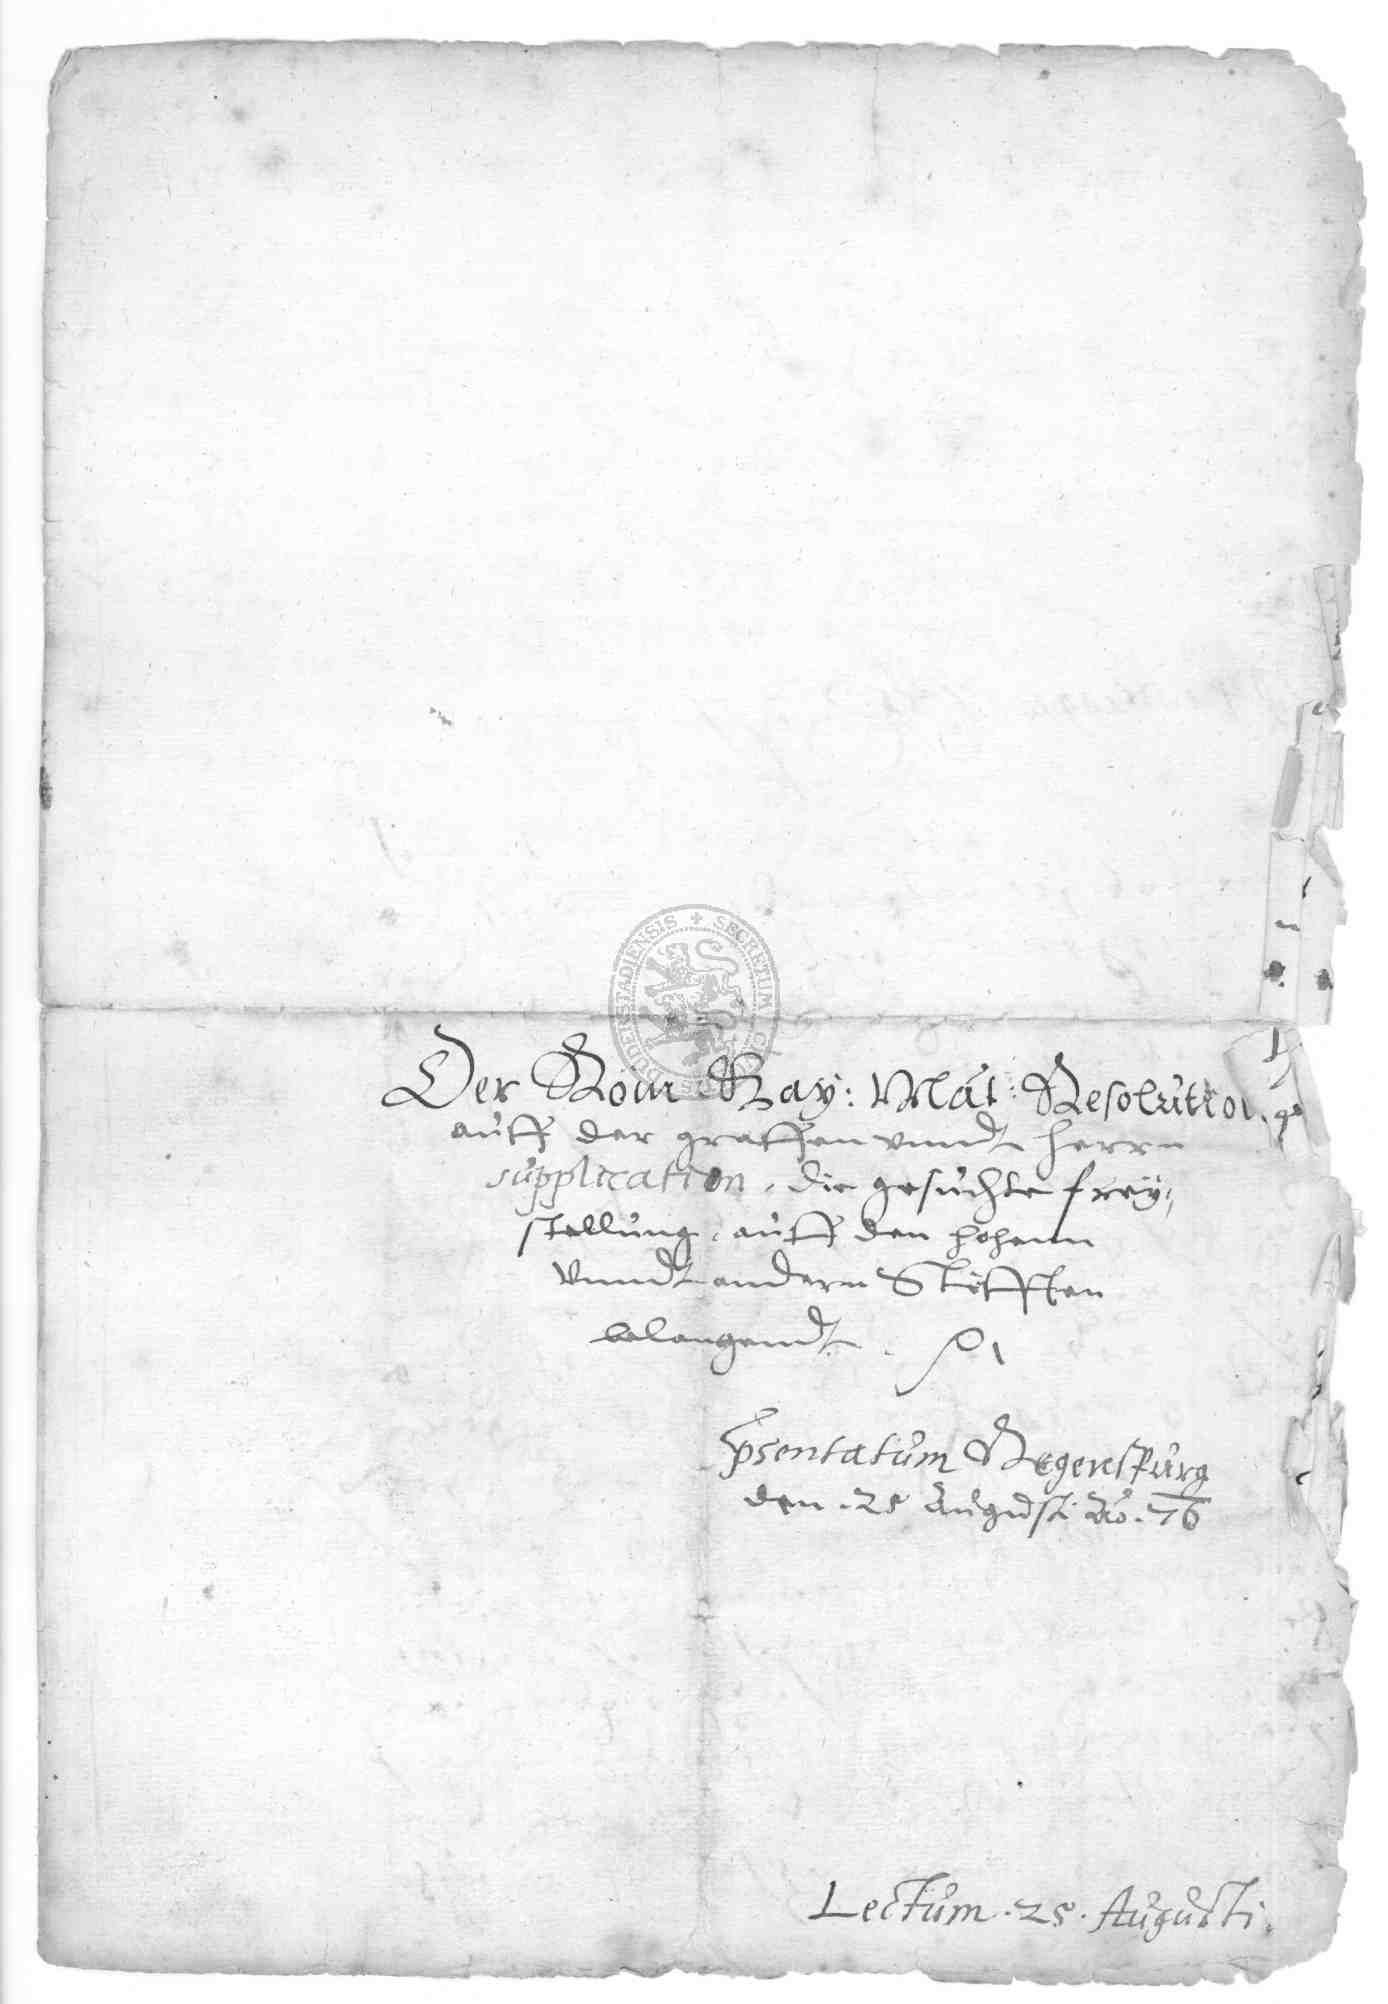 Der Röm Kay: Mat: Resolution
auff der graffen unndt herrn
supplication, die gesuchte frey,
stellung, auff den hohenn
Unndt andern Stifften
belangendt.
Psentatum Regenspurg
den .25 Augusti Ao. 76
Lectum .25. Augusti.
SECRETUM
DUDENSTADIENSIS